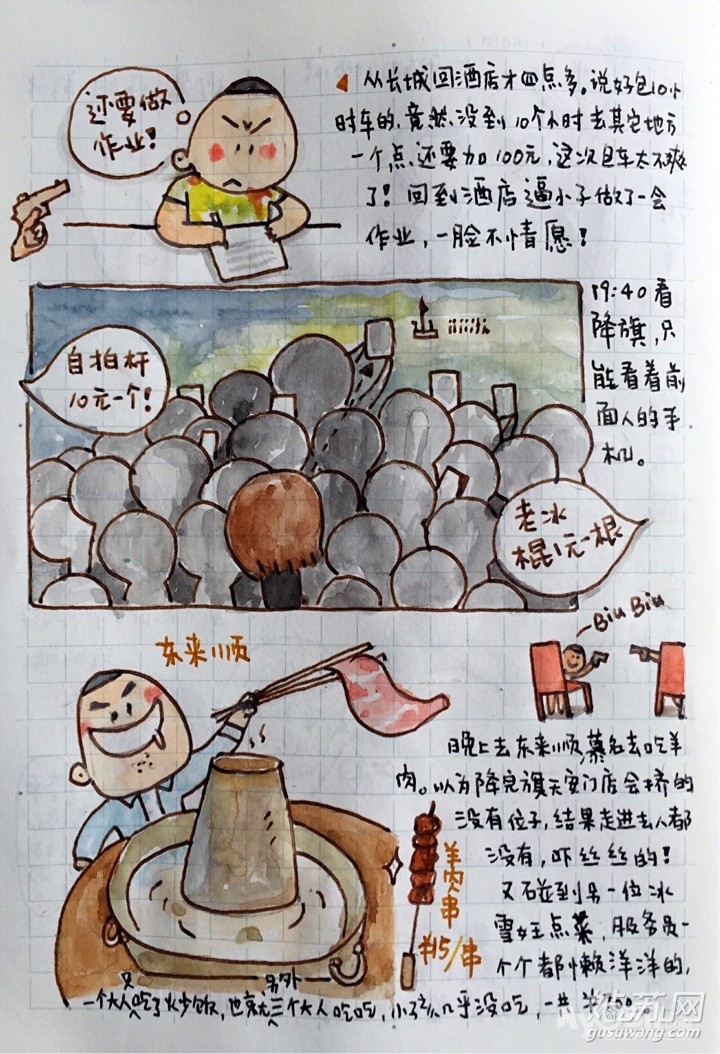 还要做
作业!
从长城回酒店才四点多。说好包10小
时车的,竟然没到10个小时去其它地方
一个点还要加100元,这次包车太不爽
了!回到酒店逼小子做了一会
作业,一脸不情愿!
19:40看
降旗,只
能看着前
面人的手
机。
自拍杆
10元一个!
老冰
棍1元一根
Biu Biu
东来顺
晚上去东来顺,慕名去吃羊
肉。以为降完旗天安门店会挤的
没有位子,结果走进去人都
没有,吓丝丝的!
又碰到另一位冰
雪女王点菜,服务员一
个个都懒洋洋的,
羊肉串
¥15/串
只 另外
一个大人吃了火少饭,也就三个大人吃吃,小孩几乎没吃,一共
姑苏网
gusuwang.com